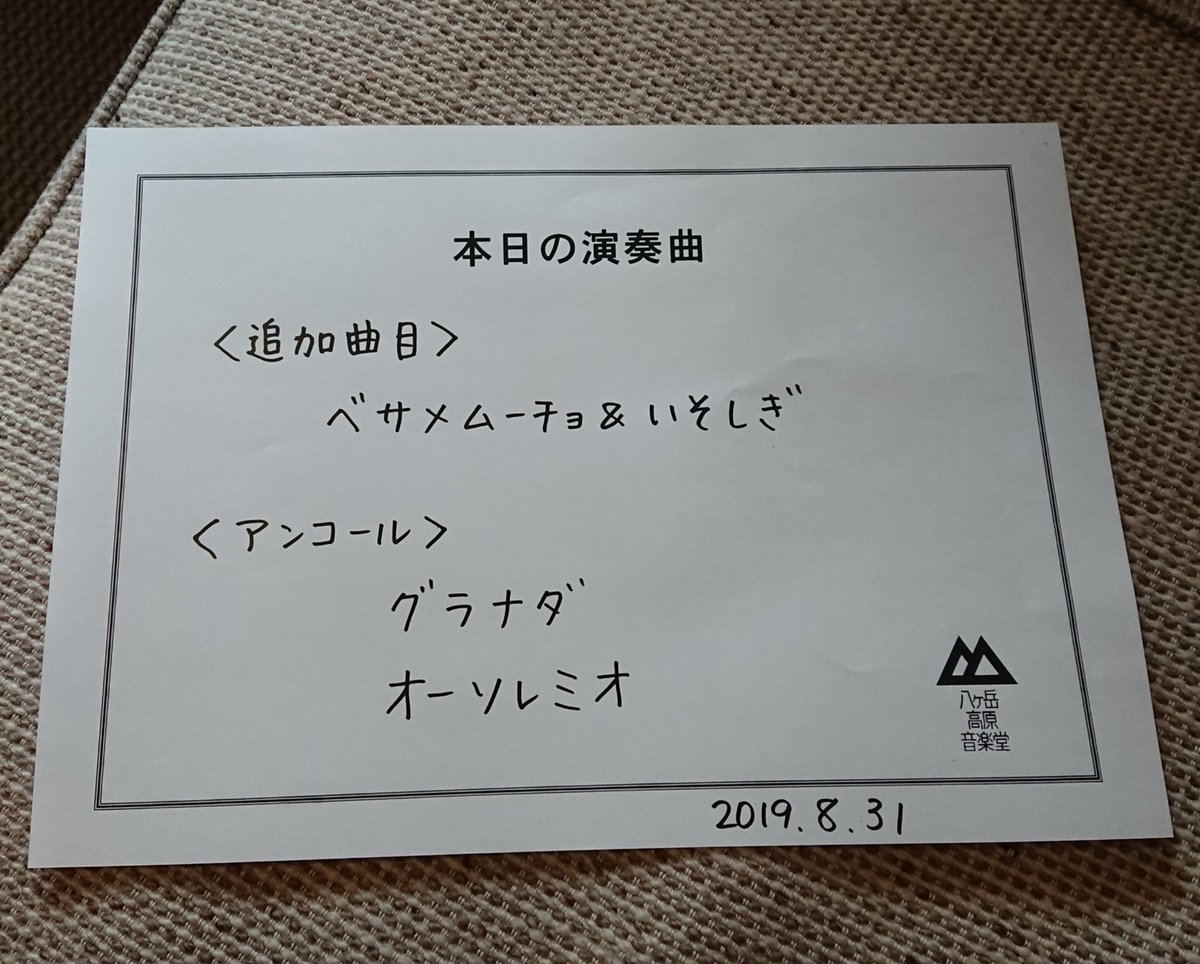 本日の演奏曲
〈追加曲目〉
ベサメムーチョ&いそしぎ
〈アンコール〉
グラナダ
オーソレミオ
八ヶ岳
高原
音楽堂
2019.8.31